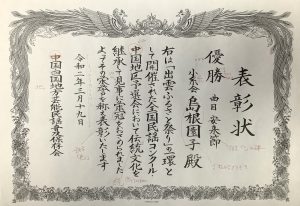 表彰状
優勝 曲目 安来節
小笠会 島根園子殿
右は「出雲ふるさと祭り」の一環と
して開催された全国民謡コンクール
中国地区予選会において伝統文化を
継承して見事に栄冠をおさめられました
よってその栄誉を称え表彰いたします
令和二年三月十九日
中国四国地方芸能民謡音保存会